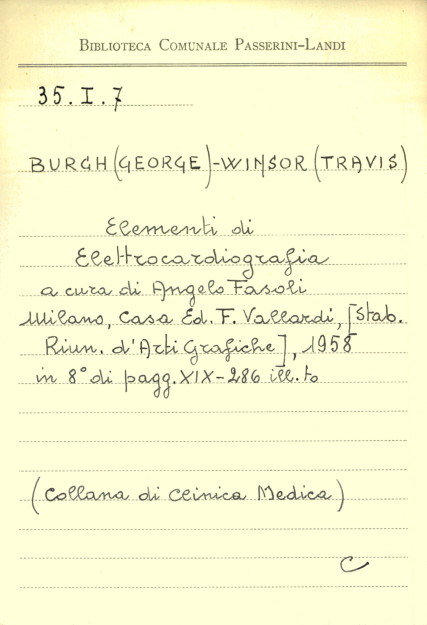 BIBLIOTECA COMUNALE PASSERINI-LANDI
35.I.7
BURGH (GEORGE)-WINSOR (TRAVIS)
Elementi di
Elettrocardiografia
a cura di Angelo Fasoli
Milano, Casa Ed. F. Vallardi, [Stab.
Riun. d'Arti Grafiche], 1958
in 8° di pagg. XIX-286 ill.to
(Collana di Clinica Medica)
C